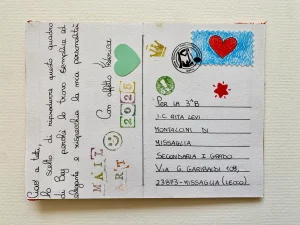 Ciao a tutti,
ho scelto di riprodurre questo quadro
di Boy perché lo trovo semplice ed
elegante e rispecchia la mia personalità
Con affetto
MAIL
ART
2025
PER LA 3^B
I.C. RITA LEVI
MONTALCINI DI
MISSAGLIA
SECONDARIA I GRADO
VIA G. GARIBALDI 109,
23873-MISSAGLIA (LECCO)